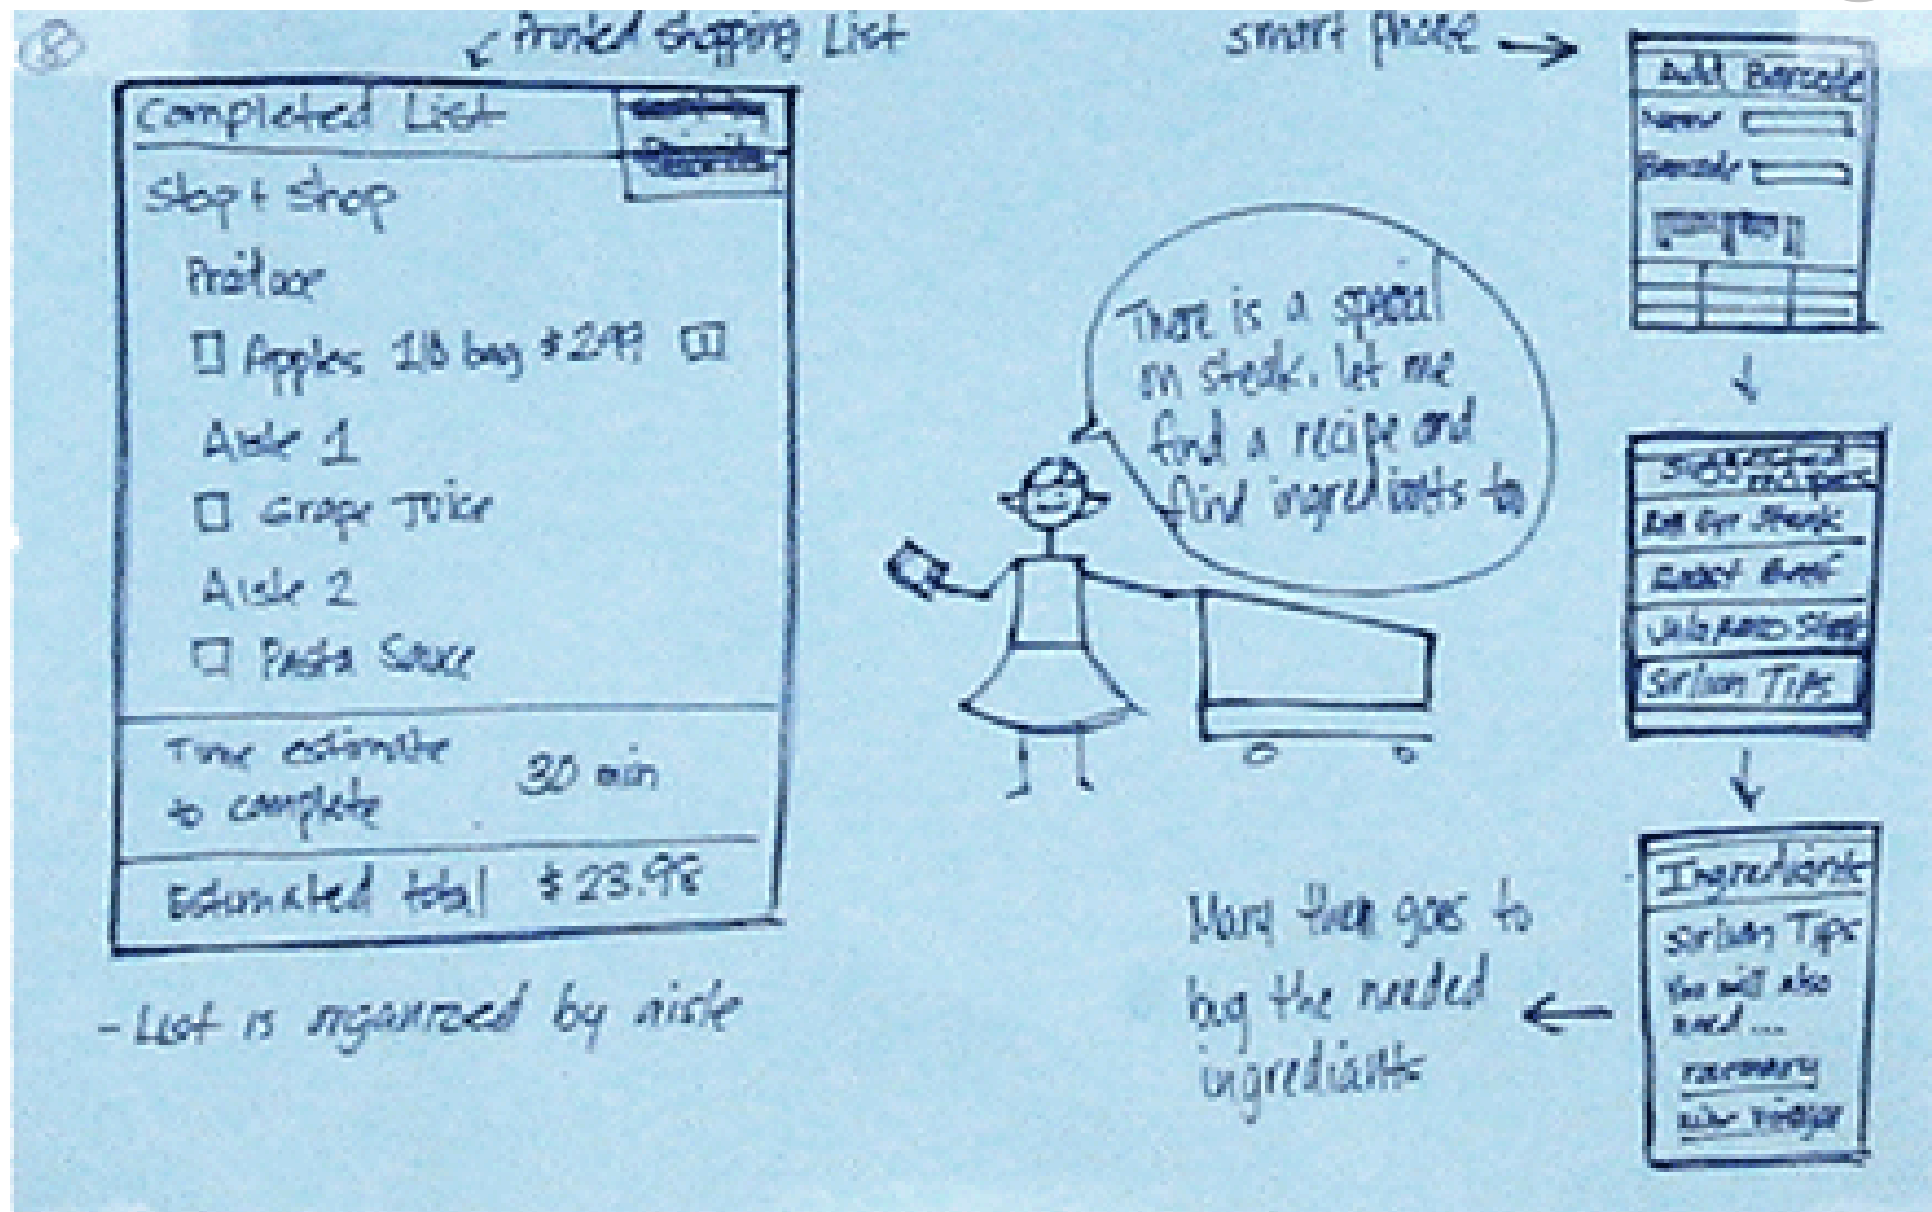 8
Printed shopping List
Completed List
Stop + Shop
Produce
Apples 1 lb bag $2.99
Aisle 1
Grape Juice
Aisle 2
Pasta Sauce
Time estimate
to complete
30 min
Estimated total $23.98
- List is organized by aisle
There is a special
on steak. let me
find a recipe and
find ingrediants to
smart phone
Add Barcode
Name
Barcode
Suggested
recipes
Steak
Roast Beef
Sirloin Tips
Ingrediants
Sirloin Tips
You will also
need ...
Mary then goes to
buy the needed
ingrediants